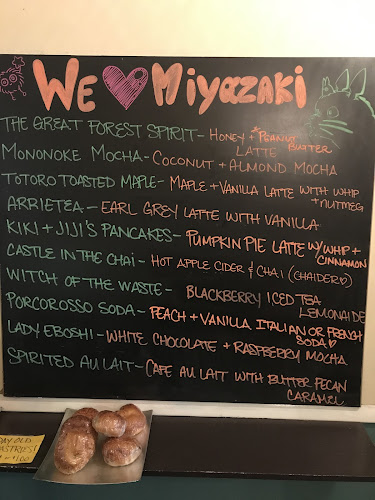 WE ♥ Miyazaki
THE GREAT FOREST SPIRIT - HONEY + PEANUT BUTTER
LATTE
MONONOKE MOCHA - COCONUT + ALMOND MOCHA
TOTORO TOASTED MAPLE - MAPLE + VANILLA LATTE WITH WHIP
+ NUTMEG
ARRIETEA - EARL GREY LATTE WITH VANILLA
KIKI + JIJI'S PANCAKES - PUMPKIN PIE LATTE W/ WHIP +
CINNAMON
CASTLE IN THE CHAI - HOT APPLE CIDER & CHAI (CHAIDER♡)
WITCH OF THE WASTE - BLACKBERRY ICED TEA
LEMONAIDE
PORCOROSSO SODA - PEACH + VANILLA ITALIAN OR FRENCH
SODA♡
LADY EBOSHI - WHITE CHOCOLATE + RASPBERRY MOCHA
SPIRITED AU LAIT - CAFE AU LAIT WITH BUTTER PECAN
CARAMEL
DAY OLD
PASTRIES!